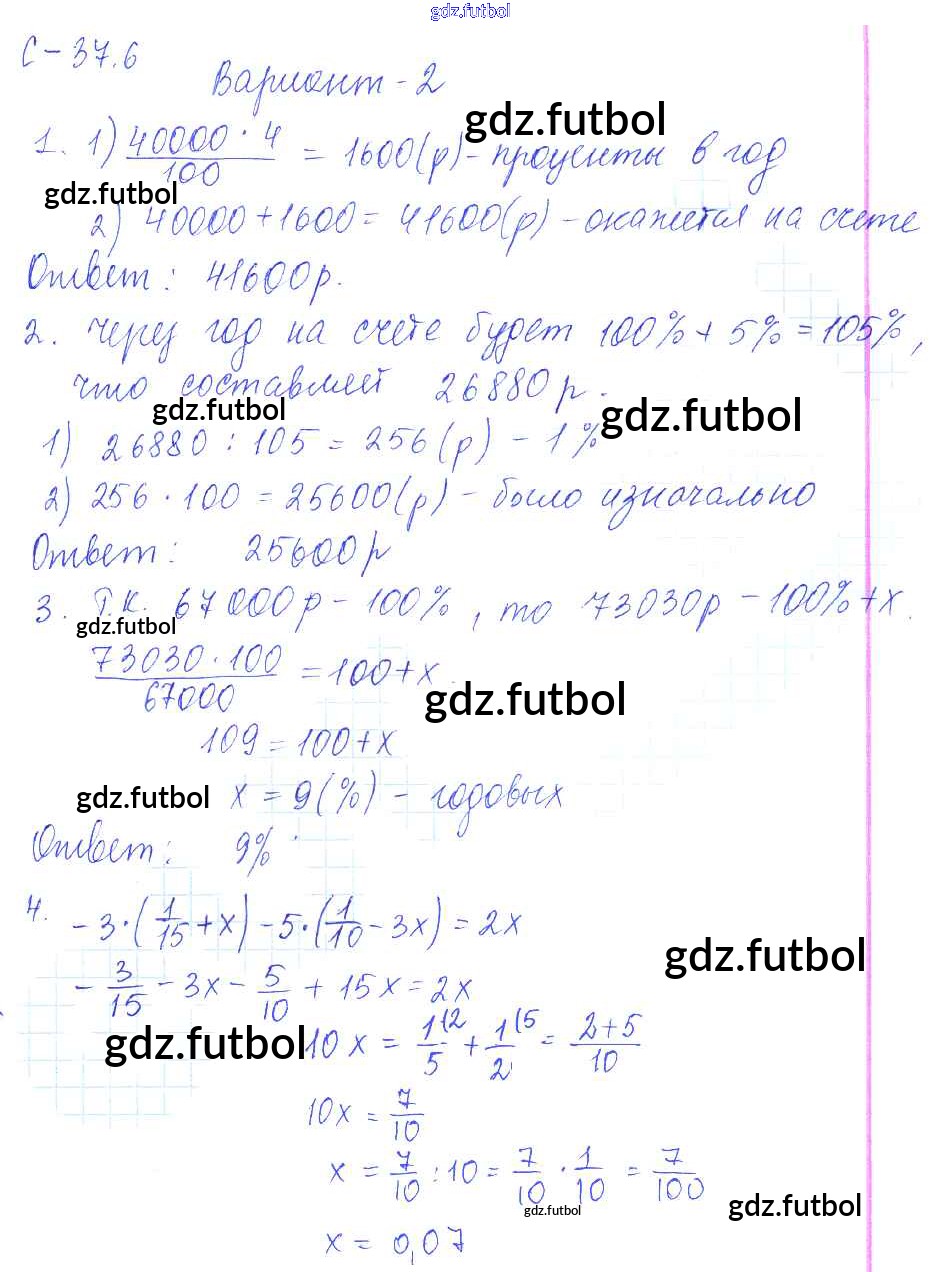 gdz.futbol
С-37.6
Вариант-2
gdz.futbol
1. 1) 40000·4/100 = 1600(р)-проценты в год
gdz.futbol
2) 40000+1600=41600(р)-окажется на счете
Ответ: 41600р.
2. Через год на счете будет 100%+5%=105%,
что составляет 26880р.
gdz.futbol gdz.futbol
1) 26880:105=256(р)-1%
2) 256·100=25600(р)-было изначально
Ответ: 25600р
3. Т.К. 67000р-100%, то 73030р-100%+x.
gdz.futbol
73030·100/67000 = 100+x.
gdz.futbol
109=100+x
gdz.futbol x=9(%)-годовых
Ответ: 9%.
4. -3·(1/15+x)-5·(1/10-3x)=2x
gdz.futbol
-3/15-3x-5/10+15x=2x
gdz.futbol 10x=1(2/5+1(5/2=2+5/10
10x=7/10
x=7/10:10=7/10·1/10=7/100
gdz.futbol gdz.futbol
x=0,07